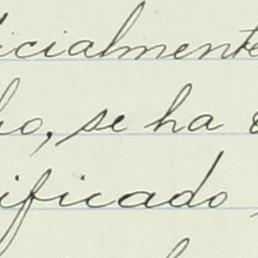 icialmente
ho, se ha
ificado,